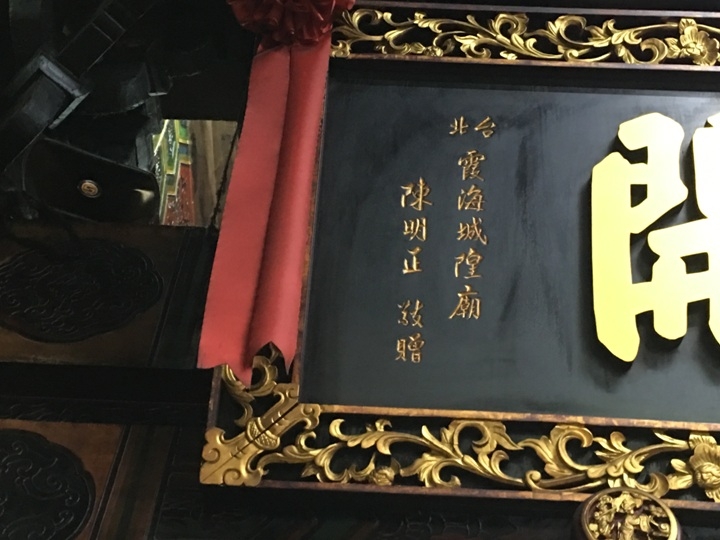 開
台北
霞海城隍廟
陳明正 敬贈